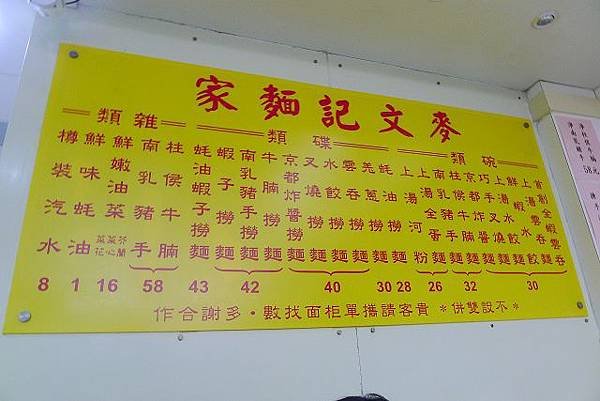 麥文記麵家
碗類
首創全蝦雲吞
上湯雲吞麵
鮮蝦水餃
上湯水餃麵
30
巧手叉燒麵
京都炸醬麵
32
柱侯牛腩麵
南乳豬手麵
上湯全蛋麵
26
上湯河粉
28
碟類
蚝油撈麵
30
羌葱撈麵
雲吞撈麵
水餃撈麵
叉燒撈麵
京都炸醬撈麵
40
牛腩撈麵
南乳豬手撈麵
蝦子撈麵
42
蚝油蝦子撈麵
43
雜類
柱侯牛腩
南乳豬手
58
鮮嫩油菜
芥蘭
菜心
菜花
16
鮮味蚝油
1
樽裝汽水
8
*不設雙併*貴客請攜單柜面找數・多謝合作
58元